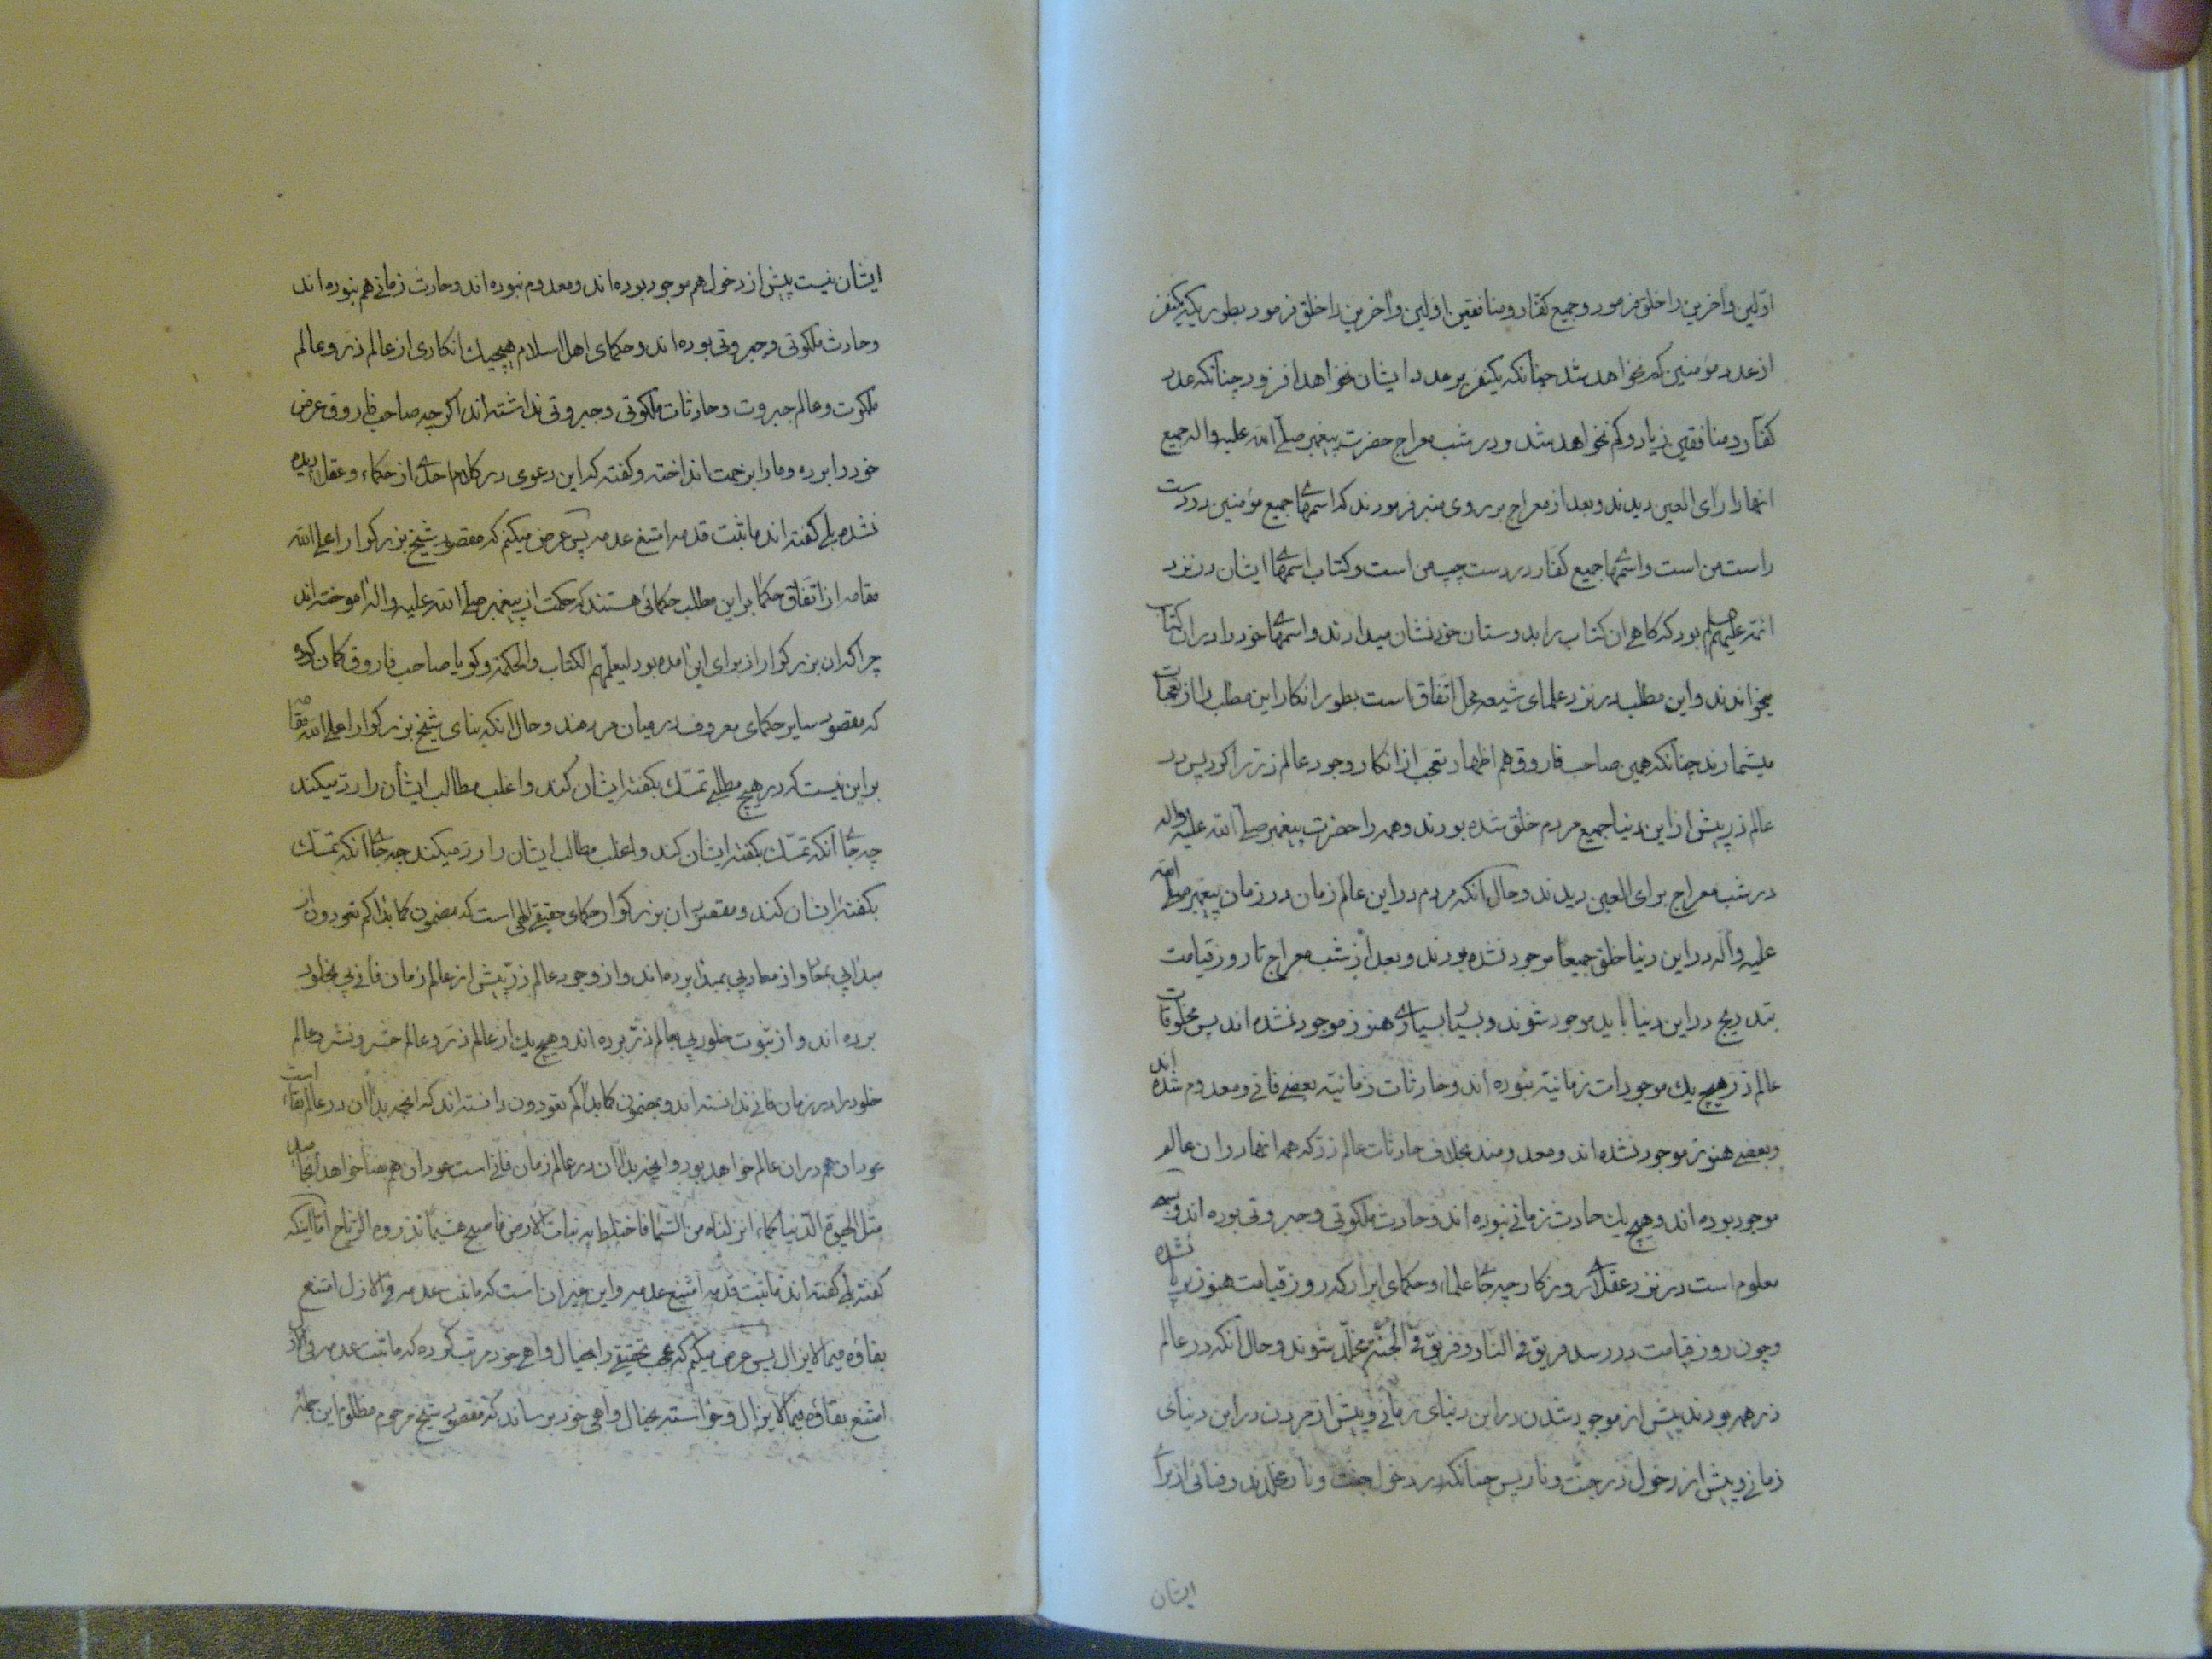 اوّلین و آخرین را خلق فرمود و جمیع کفّار و منافقین اولین و آخرین را خلق فرمود بطوریکه یکنفر
از عدد مؤمنین کم نخواهد شد چنانکه یکنفر بر عدد ایشان نخواهد افزود چنانکه عدد
کفّار و منافقین زیاد و کم نخواهد شد و در شب معراج حضرت پیغمبر صلّی الله علیه و اله جمیع
انها را رای العین دیدند و بعد از معراج بر روی منبر فرمودند که اسمهای جمیع مؤمنین در دست
راست من است و اسمهای جمیع کفار در دست چپ من است و کتاب اسمهای ایشان در نزد
ائمّه علیهم بود که گاهی ان کتاب را بدوستان خود نشان میدادند و اسمهای خود را در ان کتاب
میخواندند و این مطلب در نزد علمای شیعه محل اتفاق است بطور انکار این مطلب را از
میشمارند چنانکه همین صاحب فاروق هم اظهار تعجب از انکار وجود عالم ذرّ را کرد پس در
عالم ذر پیش از این دنیا جمیع مردم خلق شده بودند و همه را حضرت پیغمبر صلّی الله علیه و اله
در شب معراج برای العین دیدند و حال انکه مردم در این عالم زمان در زمان پیغمبر صلّی الله
علیه و آله در این دنیا خلق جمیعا موجود نشده بودند و بعد از شب معراج تا روز قیامت
بتدریج در این دنیا باید موجود شوند و بسیار بسیاری هنوز موجود نشده اند پس مخلوقات
عالم ذرّ هیچ یک موجودات زمانیه نبوده اند و حادثات زمانیّه بعضی فانی و معدوم شده اند
و بعضی هنوز موجود نشده اند و معدومند بخلاف حادثات عالم ذر که همه انها در ان عالم
موجود بوده اند و هیچ یک حادث زمانی نبوده اند و حادث ملکوتی و جبروتی بوده اند و
معلوم است در نزد عقلای روزکار چه جای علما و حکمای ابرار که روز قیامت هنوز برپا نشده
و چون روز قیامت در رسد فریق فی النار و فریق فی الجنّة مخلّد شوند و حال انکه در عالم
ذر همه بودند پیش از موجود شدن در این دنیای زمانی و پیش از مردن در این دنیای
زمانی و پیش از دخول در جنّت و نار پس چنانکه در دخول جنت و نار مخلّدند و فنائی از برای
ایشان
ایشان نیست پیش از دخول هم موجود بوده اند و معدوم نبوده اند و حادث زمانی هم نبوده اند
و حادث ملکوتی و جبروتی بوده اند و حکمای اهل اسلام هیچیک انکاری از عالم ذر و عالم
ملکوت و عالم جبروت و حادثات ملکوتی و جبروتی نداشته اند اکر چه صاحب فاروق عرض
خود را برده و ما را بزحمت انداخته و کفته که این دعوی در کلام احدی از حکماء و عقلاء دیده
نشده بلی کفته اند ما ثبت قدمه امتنع عدمه پس عرض میکنم که مقصود شیخ بزرکوار اعلی الله
مقامه از اتّفاق حکما بر این مطلب حکمائی هستند که حکمت از پیغمبر صلی الله علیه و اله اموخته اند
چرا که ان بزرکوار از برای این امده بود لیعلّمهم الکتاب و الحکمة و کویا صاحب فاروق کمان کرده
که مقصود سایر حکمای معروف در میان مردمند و حال انکه بنای شیخ بزرکوار اعلی الله مقامه
بر این نیست که در هیچ مطلبی تمسّک بکفته ایشان کنند و اغلب مطالب ایشان را رد میکنند
چه جای انکه تمسّک بکفته ایشان کند و اغلب مطالب ایشان را رد میکنند چه جای انکه تمسّک
بکفته ایشان کنند و مقصود ان بزرکوار حکمای حقیقی الهی است که بمضمون کما بداکم تعودون از
مبدا پی بمعاد و از معاد پی بمبدا برده اند و از وجود عالم ذرّ پیش از عالم زمان فانی پی بخلود
برده اند و از ثبوت خلود پی بعالم ذرّ برده اند و هیچ یک از عالم ذر و عالم حشر و نشر و عالم
خلود را در زمان فانی ندانسته اند و بمضمون کما بداکم تعودون دانسته اند که انچه بدا ان در عالم بقاء است
عود ان هم در ان عالم خواهد بود و انچه بدا ان در عالم زمان فانی است عود ان هم بفنا خواهد انجامید
مثل الحیوة الدّنیا کماء انزلناه من السّماء فاختلط به نبات الارض فاصبح هشیما تذروه الریاح اما اینکه
کفته بلی کفته اند ما ثبت قدمه امتنع عدمه و این غیر ان است که ما ثبت عدمه فی الازل امتنع
بقاؤه فیما لا یزال پس عرض میکنم که عجب تحقیقی را بخیال واهی خود مرتب کرده که ما ثبت عدمه فی الازل
امتنع بقاؤه فیما لا یزال و خواسته بخیال واهی خود برساند که مقصود شیخ مرحوم مظلوم این جمله